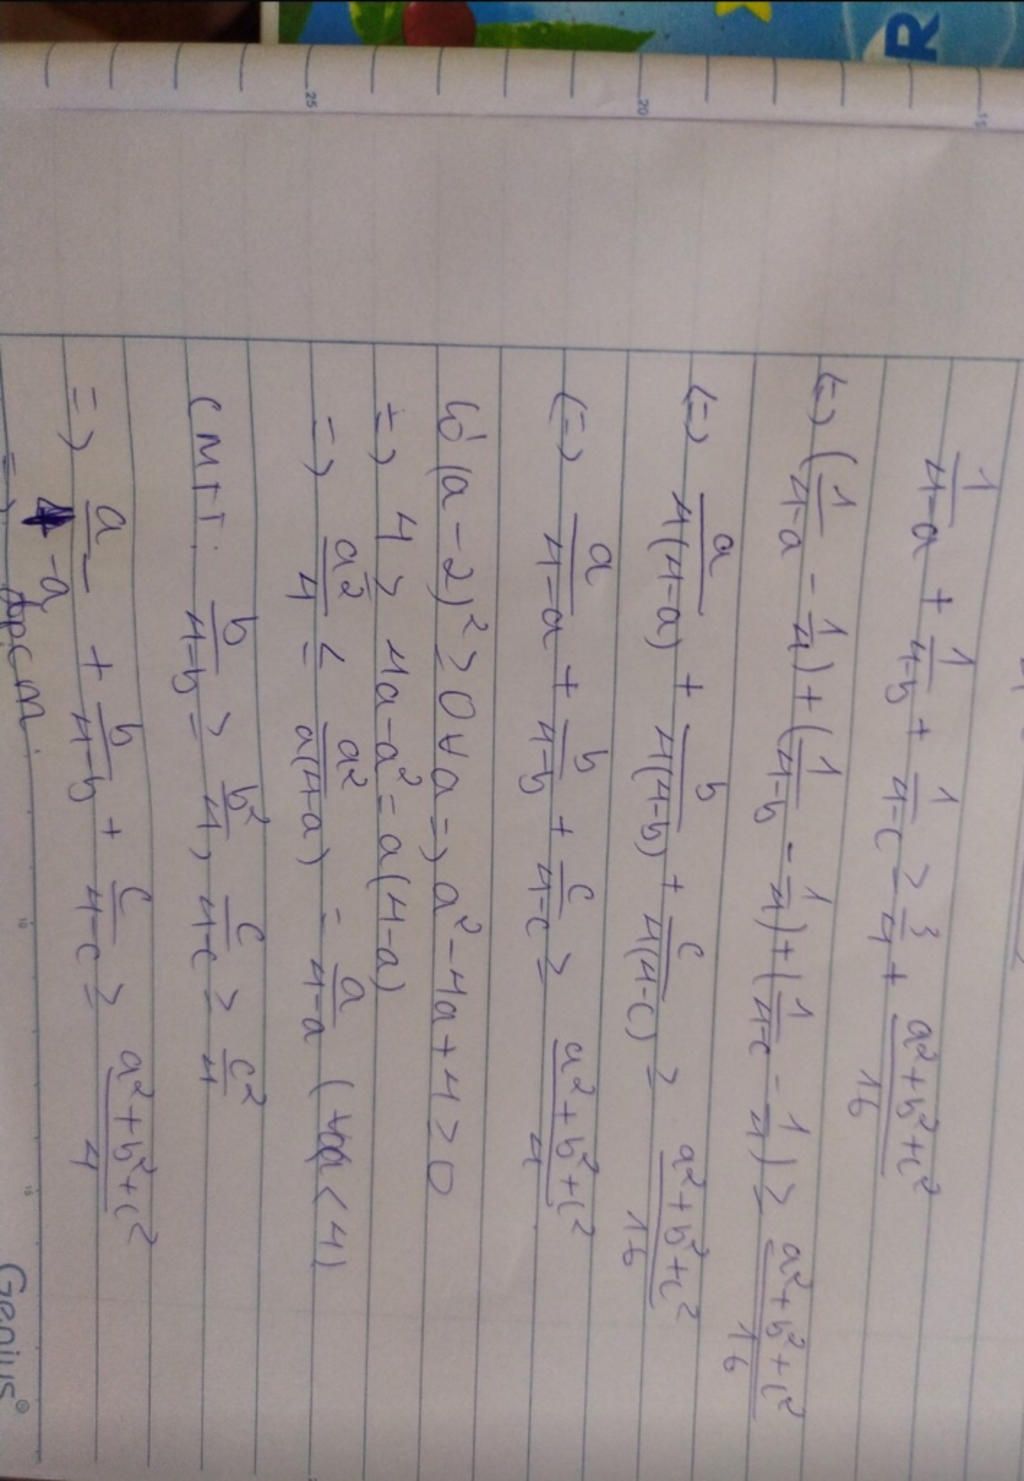 1/(4-a) + 1/(4-b) + 1/(4-c) ≥ 3/4 + (a²+b²+c²)/16
(=) (1/(4-a) - 1/4) + (1/(4-b) - 1/4) + (1/(4-c) - 1/4) ≥ (a²+b²+c²)/16
(=) a/(4(4-a)) + b/(4(4-b)) + c/(4(4-c)) ≥ (a²+b²+c²)/16
(=) a/(4-a) + b/(4-b) + c/(4-c) ≥ (a²+b²+c²)/4
Có (a-2)² ≥ 0 ∀a =) a² - 4a + 4 ≥ 0
=) 4 ≥ 4a - a² = a(4-a)
=) a²/4 ≤ a²/(a(4+a)) = a/(4-a) (∀a < 4)
CMTT: b/(4-b) ≥ b²/4, c/(4-c) ≥ c²/4
=) a/-a + b/(4-b) + c/(4-c) ≥ (a²+b²+c²)/4
=) đpcm.
15
20
25
R
10
15
Genius®